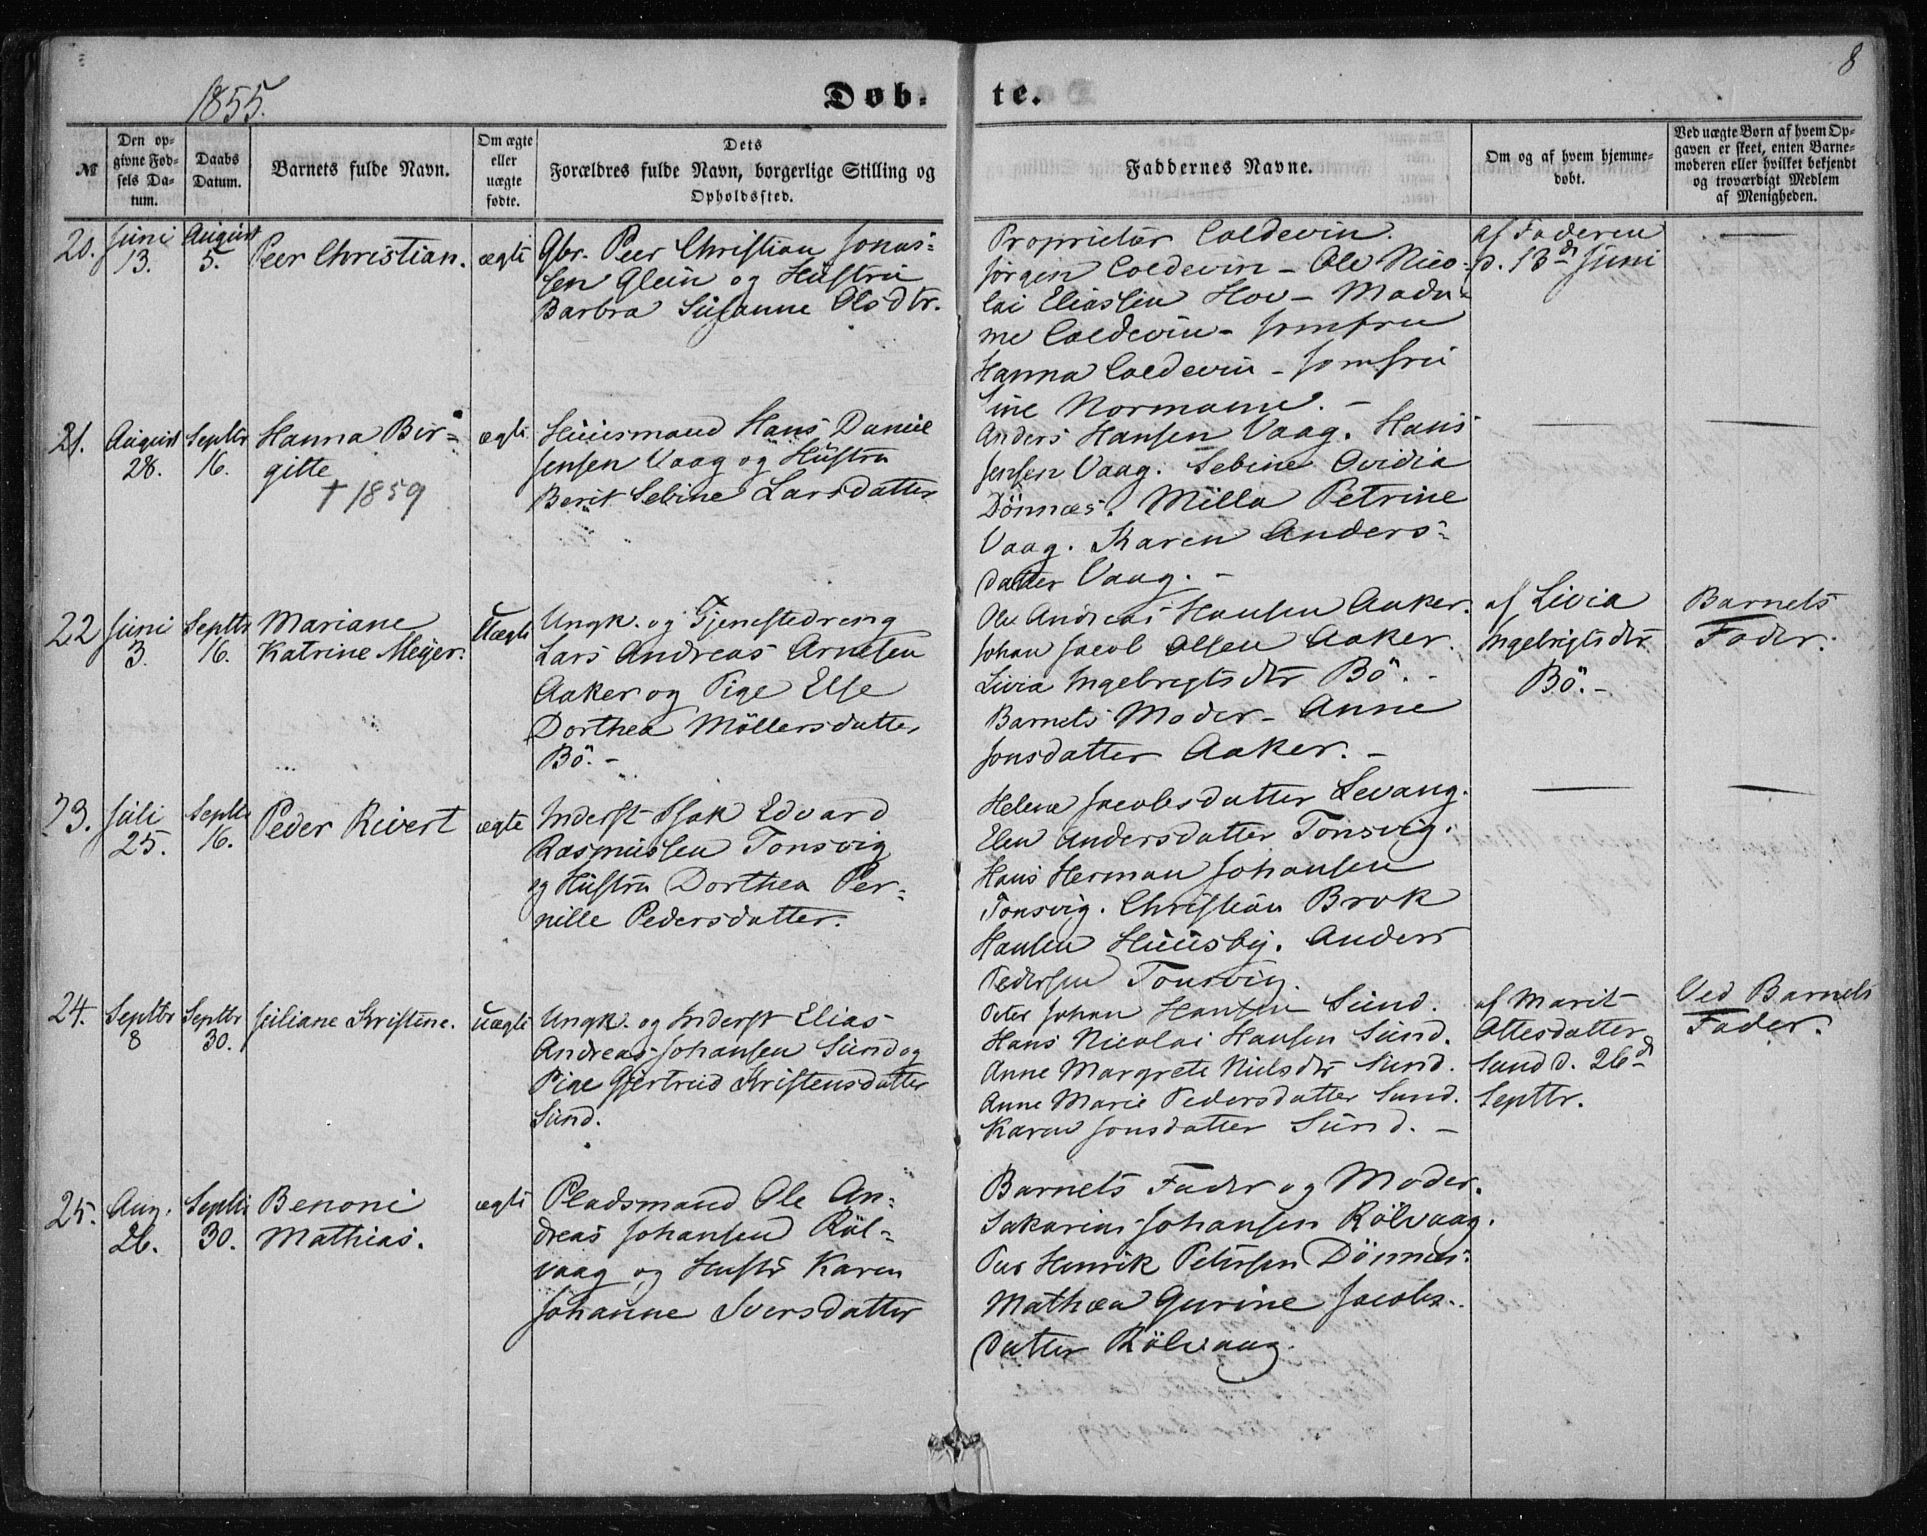 8
1855.
Døb-te.
№
Den opgivne Fødsels Datum.
Daabs Datum.
Barnets fulde Navn.
Om ægte eller uægte fødte.
Dets Forældres fulde Navn, borgerlige Stilling og Opholdssted.
Faddernes Navne.
Om og af hvem hjemmedøbt.
Ved uægte Børn af hvem Opgaven er skeet, enten Barnemoderen eller hvilket bekjendt og troværdigt Medlem af Menigheden.
20. Juni 13. August 5. Peer Christian. ægte
Gbr. Peer Christian Jonas-
sen Glein og Hustru
Barbra Susanne Olsdtr.
Proprietær Coldevin.
Jørgen Coldevin - Ole Nico-
lai Eliassen Hov - Mada-
me Coldevin - Jomfru
Hanna Coldevin - Jomfru
Sine Normann. -
af Faderen
d. 13de Juni
21. August 28. Septbr 16. Hanna Bir-
gitte
† 1859
ægte
Huusmand Hans Daniel
Jensen Vaag og Hustru
Berit Sebine Larsdatter
Anders Hansen Vaag. Hans
Jensen Vaag. Sebine Ovidia
Dönnæs. Milla Petrine
Vaag. Karen Anders-
datter Vaag. -
22 Juni 3. Septbr 16. Mariane
Katrine Meyer.
Uægte
Ungk. og Tjenestedreng
Lars Andreas Arnesen
Aaker og Pige Else
Dorthea Möllersdatter
Bö. -
Ole Andreas Hansen Aaker.
Johan Jacob Olsen Aaker.
Livia Ingebrigtsdtr Bö. -
Barnets Moder - Anne
Jonsdatter Aaker. -
af Livia
Ingebrigtsdtr
Bö. -
Barnets
Fader.
23. Juli 25. Septbr 16. Peder Rivert ægte
Inderst Isak Edvard
Rasmussen Tonsvig
og Hustru Dorthea Per-
nille Pedersdatter.
Helene Jacobsdatter Levang.
Elen Andersdatter Tonsvig.
Hans Herman Johansen
Tonsvig. Christian Brok
Hansen Huusby. Anders
Pedersen Tonsvig.
24. Septbr 8 Septbr 30. Juliane Kristine. Uægte
Ungk. og Inderst Elias
Andreas Johansen Sund og
Pige Gjertrud Kristensdatter
Sund.
Peter Johan Hansen Sund.
Hans Nicolai Hansen Sund.
Anne Margrete Nielsdtr Sund.
Anne Marie Pedersdatter Sund.
Karen Jonsdatter Sund. -
af Marit
Ottesdatter
Sund d. 26de
Septbr.
Ved Barnets
Fader.
25. Aug. 26. Septbr 30. Benoni
Mathias.
ægte
Pladsmand Ole An-
dreas Johansen Röl-
vaag og Hustr Karen
Johanne Iversdatter
Barnets Fader og Moder.
Sakarias Johansen Rölvaag.
Peer Henrik Petersen Dönnæs.
Mathea Gurine Jacobs-
datter Rölvaag.